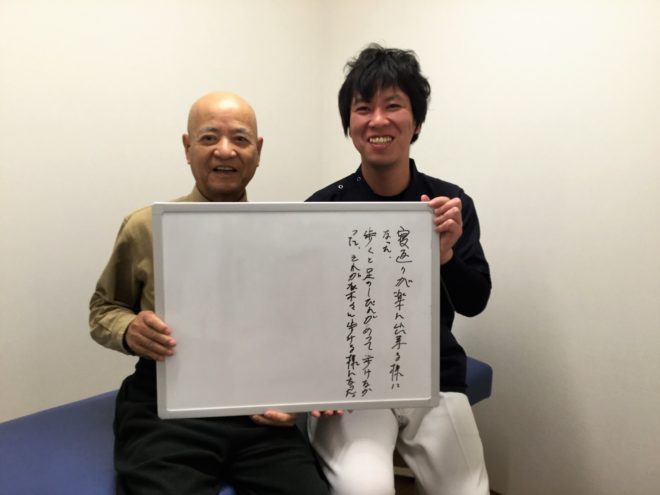 寝返りが楽に出来る様に
なった、
歩くと足のしびれがのて歩けなか
った、それが休まず歩ける様になった